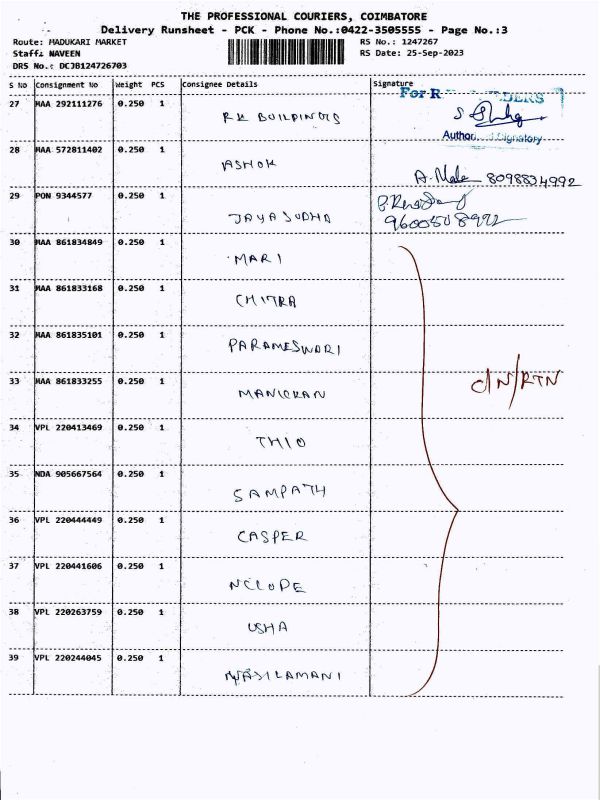 THE PROFESSIONAL COURIERS, COIMBATORE
Delivery Runsheet - PCK - Phone No.:0422-3505555 - Page No.:3
Route: MADUKARI MARKET RS No.: 1247267
Staff: NAVEEN RS Date: 25-Sep-2023
DRS No.: DCJB124726703
S No Consignment No Weight PCS Consignee Details Signature
For R
27 MAA 292111276 0.250 1 RK BUILDINGS
Signatory
28 MAA 572811402 0.250 1 ASHOK
8098834992
29 PON 9344577 0.250 1 JAYASUDHA
9600508992
30 MAA 861834849 0.250 1 MARI
31 MAA 861833168 0.250 1 CHITRA
32 MAA 861835101 0.250 1 PARAMESWARI
33 MAA 861833255 0.250 1 MANICKAN C/N/RTN
34 VPL 220413469 0.250 1 THIO
35 NDA 905667564 0.250 1 SAMPATH
36 VPL 220444449 0.250 1 CASPER
37 VPL 220441606 0.250 1
38 VPL 220263759 0.250 1 USHA
39 VPL 220244045 0.250 1 MASILAMANI